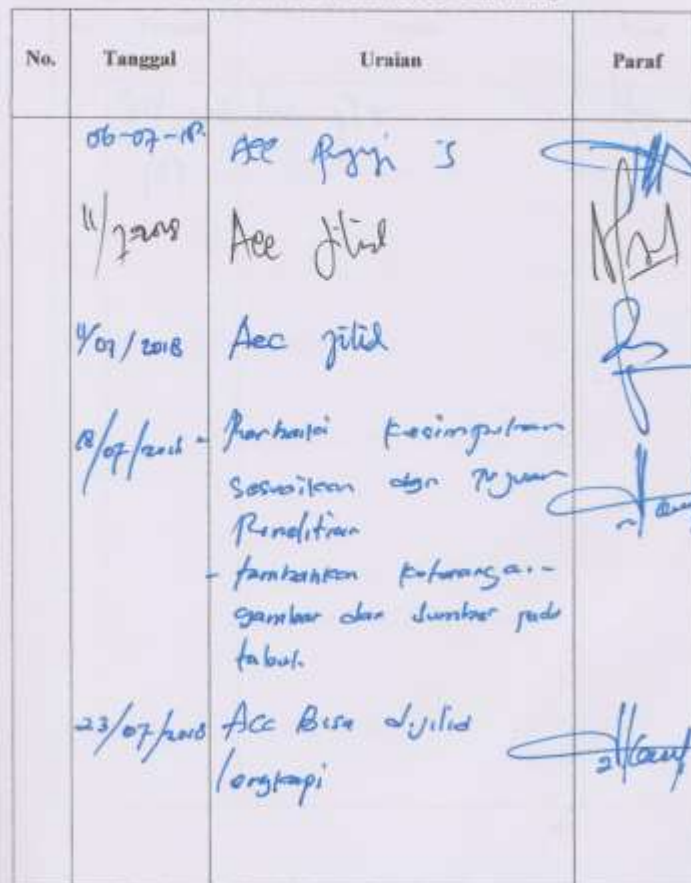 No. Tanggal Uraian Paraf
06-07-18 Acc
11/7 2018 Acc jilid
11/07/2018 Acc jilid
18/07/2018 - Perbaiki kesimpulan
Sesuaikan dgn Tujuan
Penelitian
- tambahkan keterangan
gambar dan sumber pada
tabel.
23/07/2018 Acc Bisa dijilid
lengkapi